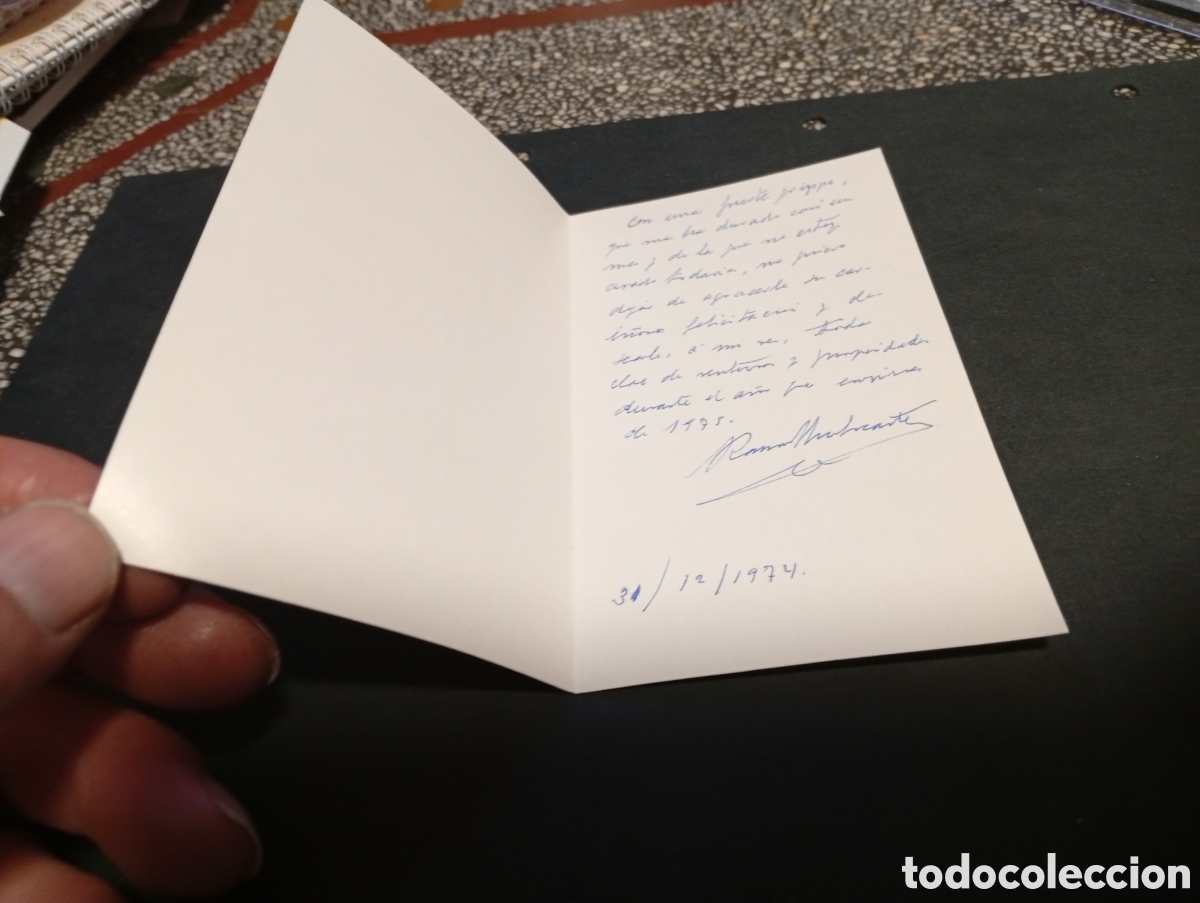 Con una fuerte grippe,
que me ha durado casi un
mes y de la que no estoy
curado todavía, no quiero
dejar de agradecerle su car-
iñosa felicitacion y de-
searle, a mi vez, toda
clase de venturas y prosperidades
durante el año que empieza
de 1975.
31/12/1974.
todocoleccion